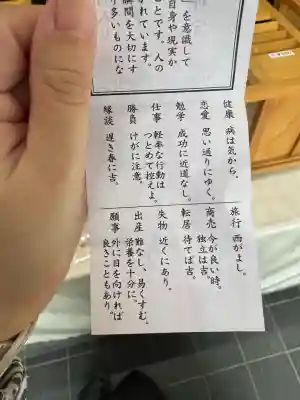 」を意識して
自身や現実か
かれています。
ことです。人の
瞬間を大切にす
り多いものにな
健康 病は気から。
恋愛 思い通りにゆく。
勉学 成功に近道なし。
仕事 軽率な行動は
つとめて控えよ。
勝負 けがに注意。
縁談 遅き春に吉。
旅行 西がよし。
商売 今が良い時。
独立は吉。
転居 待てば吉。
失物 近くにあり。
出産 難なし、易くすむ。
栄養を十分に。
願事 外に目を向ければ
良きこともあり。